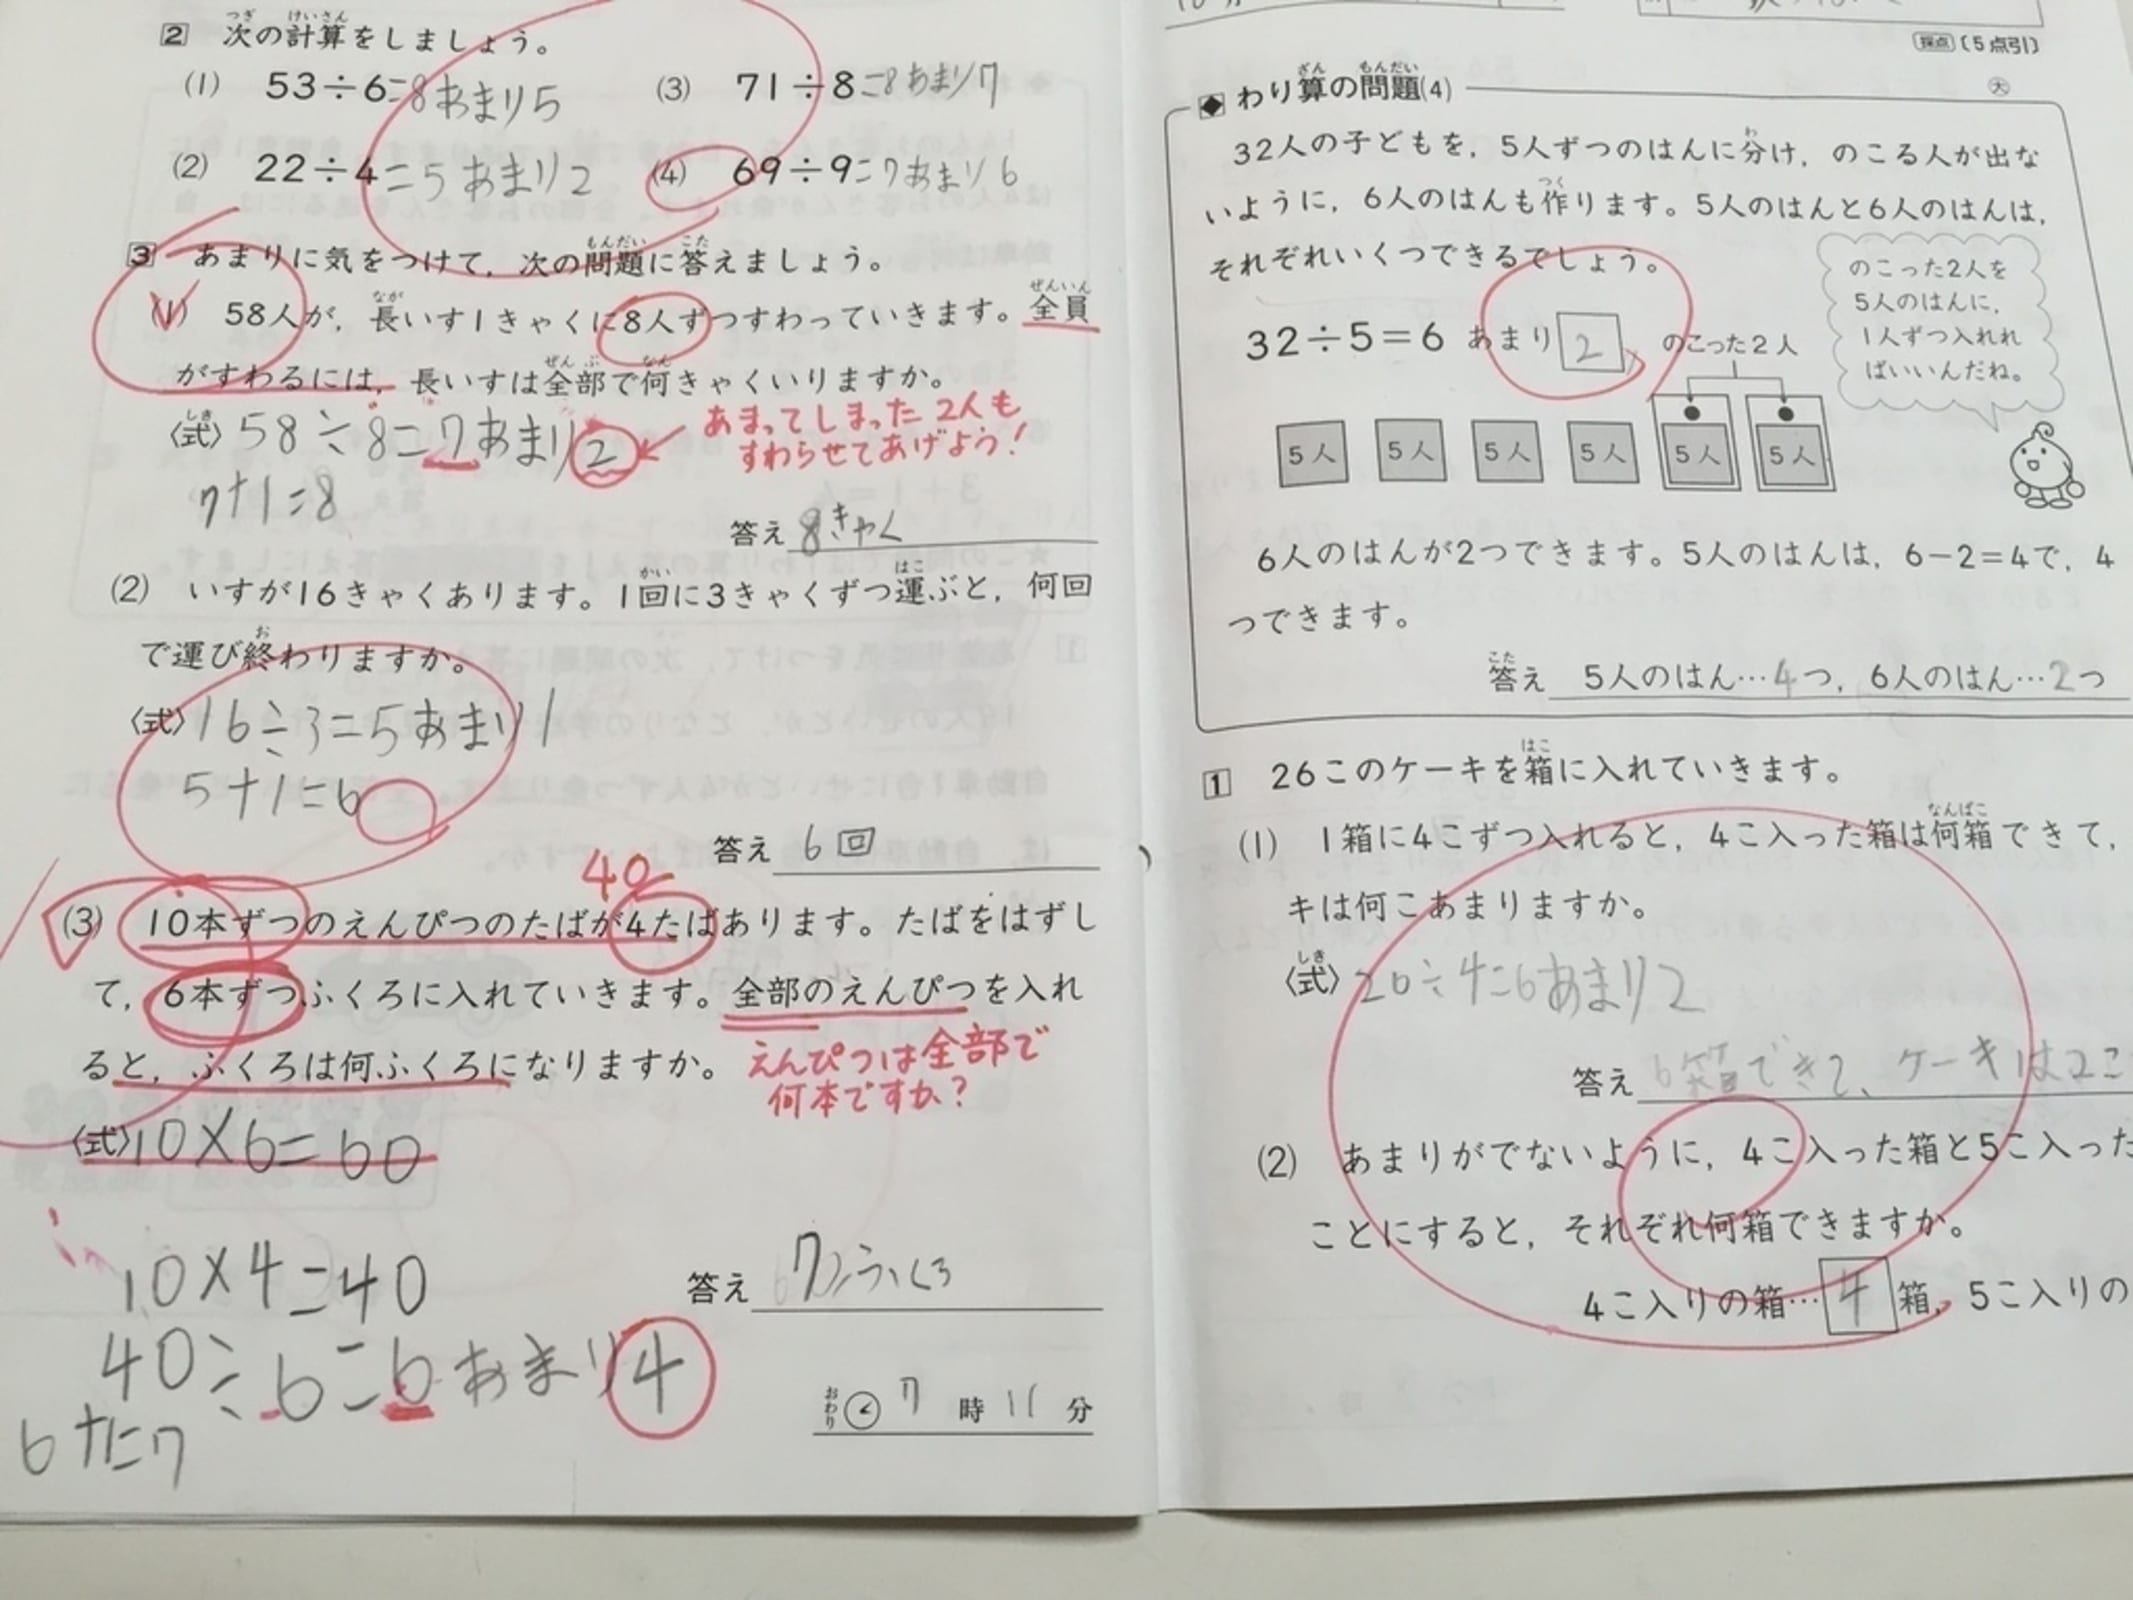 2 次の計算をしましょう。
(1) 53÷6=8あまり5
(3) 71÷8=8あまり7
(2) 22÷4=5あまり2
(4) 69÷9=7あまり6
3 あまりに気をつけて，次の問題に答えましょう。
(1) 58人が，長いす1きゃくに8人ずつすわっていきます。全員
がすわるには，長いすは全部で何きゃくいりますか。
〈式〉58÷8=7あまり2
あまってしまった2人も
すわらせてあげよう！
7+1=8
答え 8きゃく
(2) いすが16きゃくあります。1回に3きゃくずつ運ぶと，何回
で運び終わりますか。
〈式〉16÷3=5あまり1
5+1=6
答え 6回
40
(3) 10本ずつのえんぴつのたばが4たばあります。たばをはずし
て，6本ずつふくろに入れていきます。全部のえんぴつを入れ
ると，ふくろは何ふくろになりますか。
えんぴつは全部で
何本ですか？
〈式〉10×6=60
10×4=40
答え 7ふくろ
40÷6=6あまり4
おわり 7時11分
採点〔5点引〕
◆ わり算の問題(4)
大
32人の子どもを，5人ずつのはんに分け，のこる人が出な
いように，6人のはんも作ります。5人のはんと6人のはんは，
それぞれいくつできるでしょう。
のこった2人を
5人のはんに，
1人ずつ入れれ
ばいいんだね。
32÷5=6 あまり 2
のこった2人
5人 5人 5人 5人 5人 5人
6人のはんが2つできます。5人のはんは，6－2=4で，4
つできます。
答え 5人のはん…4つ，6人のはん…2つ
1 26このケーキを箱に入れていきます。
(1) 1箱に4こずつ入れると，4こ入った箱は何箱できて，
キは何こあまりますか。
〈式〉26÷4=6あまり2
答え 6箱できて、ケーキは2こ
(2) あまりがでないように，4こ入った箱と5こ入った
ことにすると，それぞれ何箱できますか。
4こ入りの箱…4箱，5こ入りの